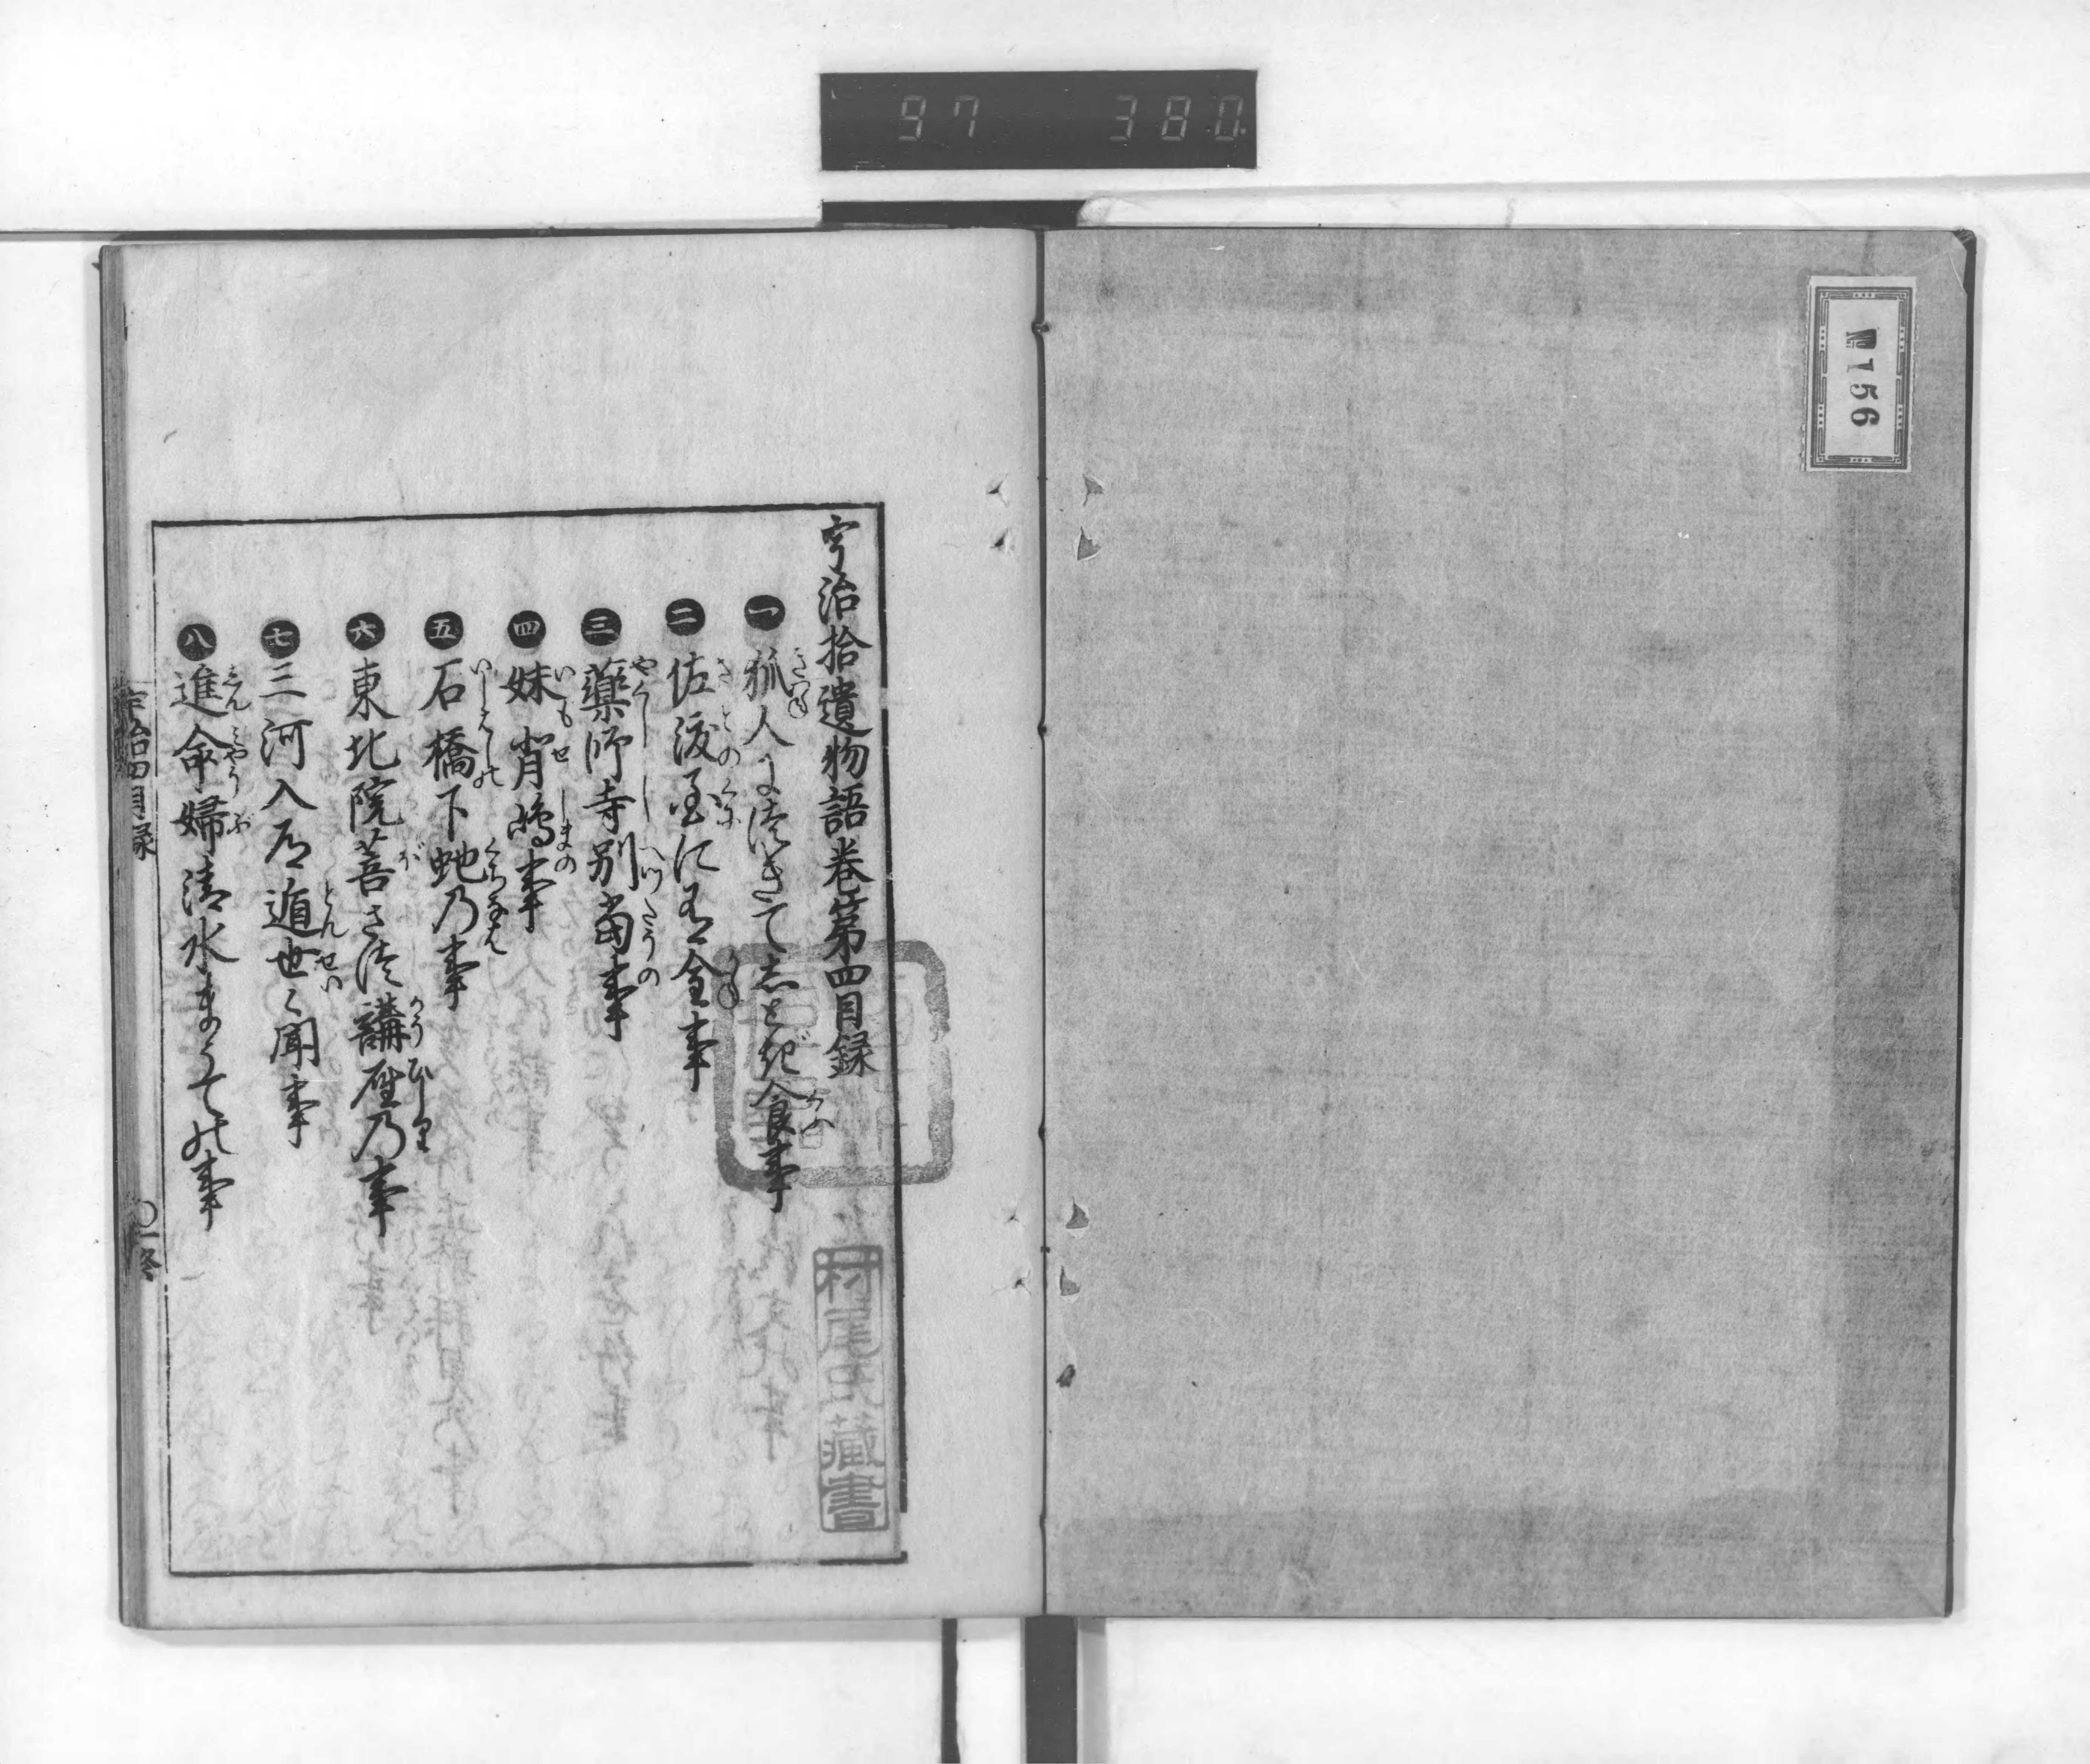 97 380
№156
宇治拾遺物語巻第四目録
一 狐人につきてしとぎ食事
二 佐渡国に有金事
三 薬師寺別当事
四 妹背嶋事
五 石橋下蛇乃事
六 東北院菩さつ講聖乃事
七 三河入道遁世之聞事
八 進命婦清水まうての事
宇治四目録
〇一終
村尾氏藏書